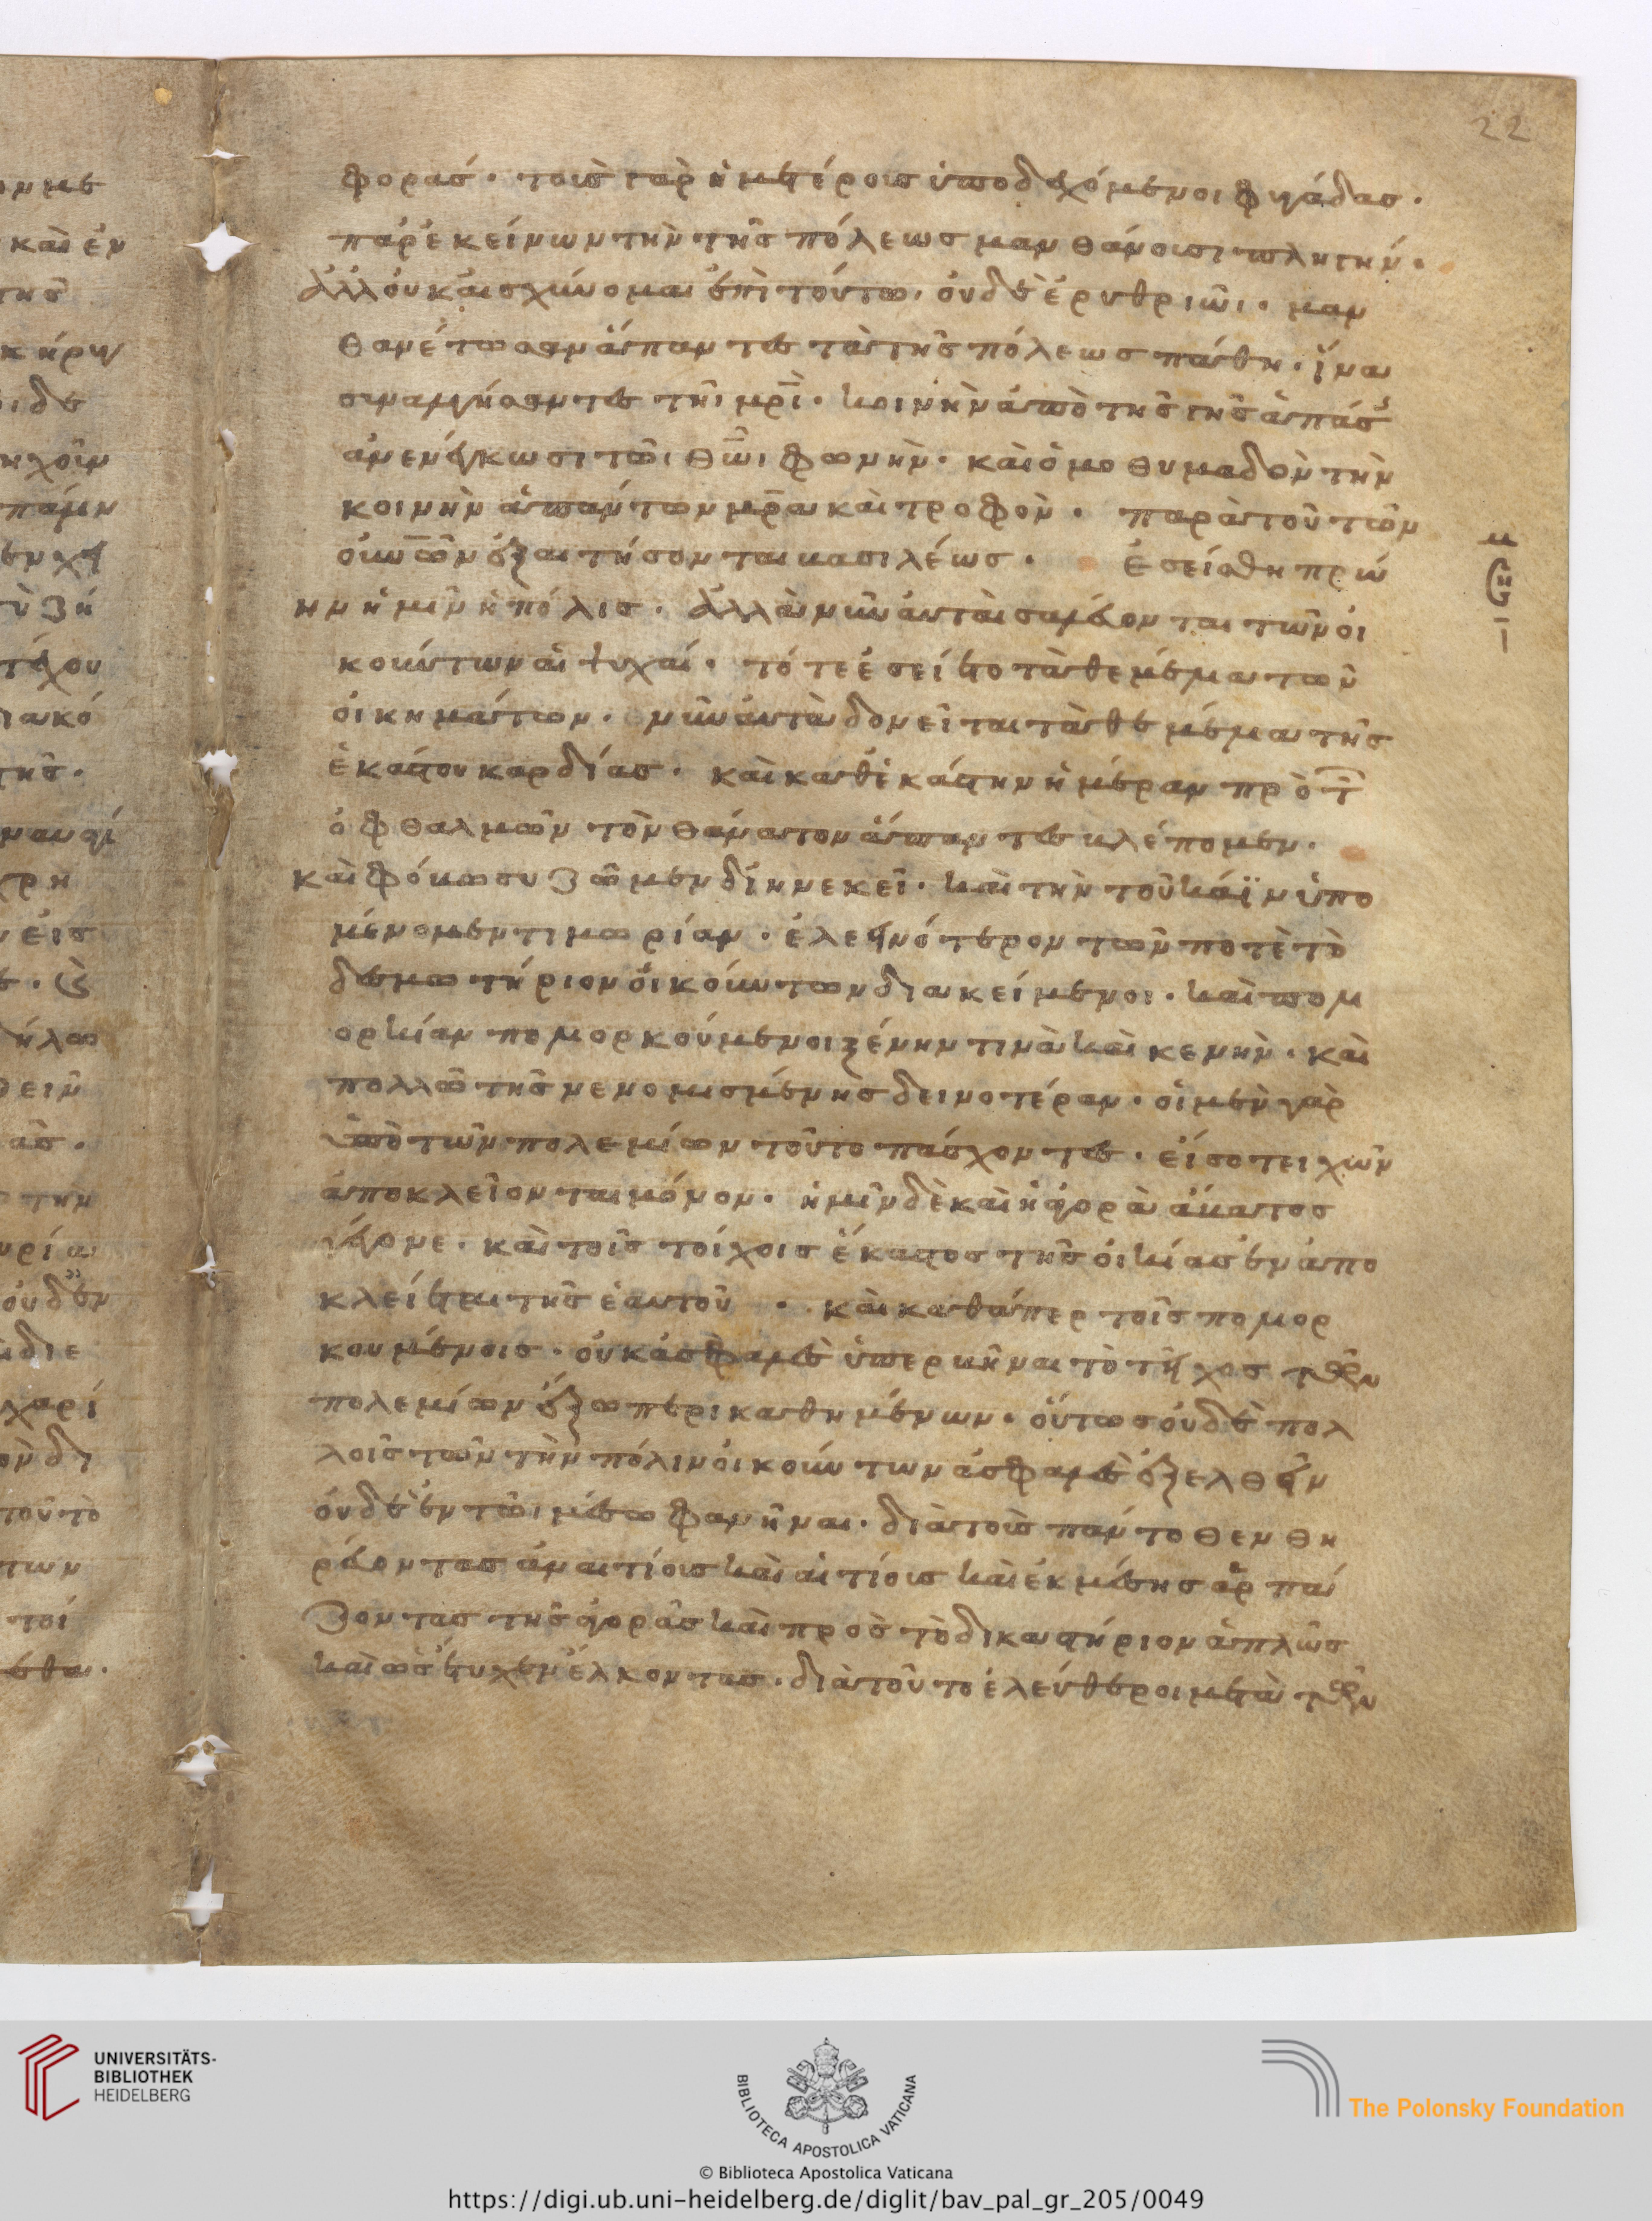 μμε
καὶ ἐν
της
κήρυ
ιδε
ηχοῖν
πάλιν
τέχου
τῆς·
χρη
ν εἰς
θεῖν
ᾶς·
τὴν
οὐδὲν
διε
χαρί
ὸν δι
τοῦτο
των
τοί
εσθαι·
22
φοράς· τοὺς γὰρ ἡμετέρους ὑποδεχόμενοι φυγάδας·
παρ' ἐκείνων τὴν τῆς πόλεως μανθάνουσι πληγήν·
ἀλλ' οὐκ αἰσχύνομαι ἐπὶ τούτω, οὐδὲ ἐρυθριῶι· μαν
θανέτωσαν ἅπαντες τὰ τῆς πόλεως πάθη· ἵνα
συναλγήσαντες τῆι μρ̅ὶ· κοινὴν ἀπὸ τῆς γῆς ἁπάσ
ἀνενέγκωσι τῶι θ̅ῶι φωνὴν· καὶ ὁμοθυμαδὸν τὴν
κοινὴν ἁπάντων μρ̅α καὶ τροφὸν· παρὰ τοῦ τῶν
οὐν̅ῶν ἐξαιτήσονται βασιλέως· Ἐσείσθη πρώ
ην ἡμῖν ἡ πόλις· ἀλλὰ νῦν αὐταὶ σαλεύονται τῶν οἰ
κούντων αἱ ψυχαί· τότε ἐσείετο τὰ θεμέλια τῶν
οἰκημάτων· νῦν αὐτὰ δονεῖται τὰ θεμέλια τῆς
ἑκάστου καρδίας· καὶ καθ' ἑκάστην ἡμέραν πρὸ τ̅
ὀφθαλμῶν τὸν θάνατον ἅπαντες βλέπομεν·
καὶ φόβω συζῶμεν διηνεκεῖ· καὶ τὴν τοῦ κάϊν ὑπο
μένομεν τιμωρίαν· ἐλεεινότερον τῶν ποτὲ τὸ
δεσμωτήριον οἰκούντων διακείμενοι· καὶ πολι
ορκίαν πολιορκούμενοι ξένην τινὰ καὶ κενὴν· καὶ
πολλῶ τῆς νενομισμένης δεινοτέραν· οἱ μὲν γὰρ
ὑπὸ τῶν πολεμίων τοῦτο πάσχοντες· εἴσο τειχῶν
ἀποκλείονται μόνον· ἡμῖν δὲ καὶ ἡ ἀγορὰ ἄβατος
γέγονε· καὶ τοῖς τοίχοις ἕκαστος τῆς οἰκίας ἐναπο
κλείεται τῆς ἑαυτοῦ· καὶ καθάπερ τοῖς πολιορ
κουμένοις· οὐκ ἀσφαλὲς ὑπερβῆναι τὸ τεῖχος τῶν
πολεμίων ἔξω περικαθημένων· οὕτως οὐδὲ πολ
λοῖς τῶν τὴν πόλιν οἰκούντων ἀσφαλὲς ἐξελθεῖν
οὐδὲ ἐν τῶι μέσω φανῆναι· διὰ τοὺς πάντοθεν θη
ρεύοντας ἀναιτίους καὶ αἰτίους καὶ ἐκ μέσης ἁρπά
ζοντας τῆς ἀγορᾶς καὶ πρὸς τὸ δικαστήριον ἁπλῶς
καὶ ὡς ἔτυχεν ἕλκοντας· διὰ τοῦτο ἐλεύθεροι μετὰ τῶν
UNIVERSITÄTS-
BIBLIOTHEK
HEIDELBERG
BIBLIOTECA APOSTOLICA VATICANA
The Polonsky Foundation
© Biblioteca Apostolica Vaticana
https://digi.ub.uni-heidelberg.de/diglit/bav_pal_gr_205/0049